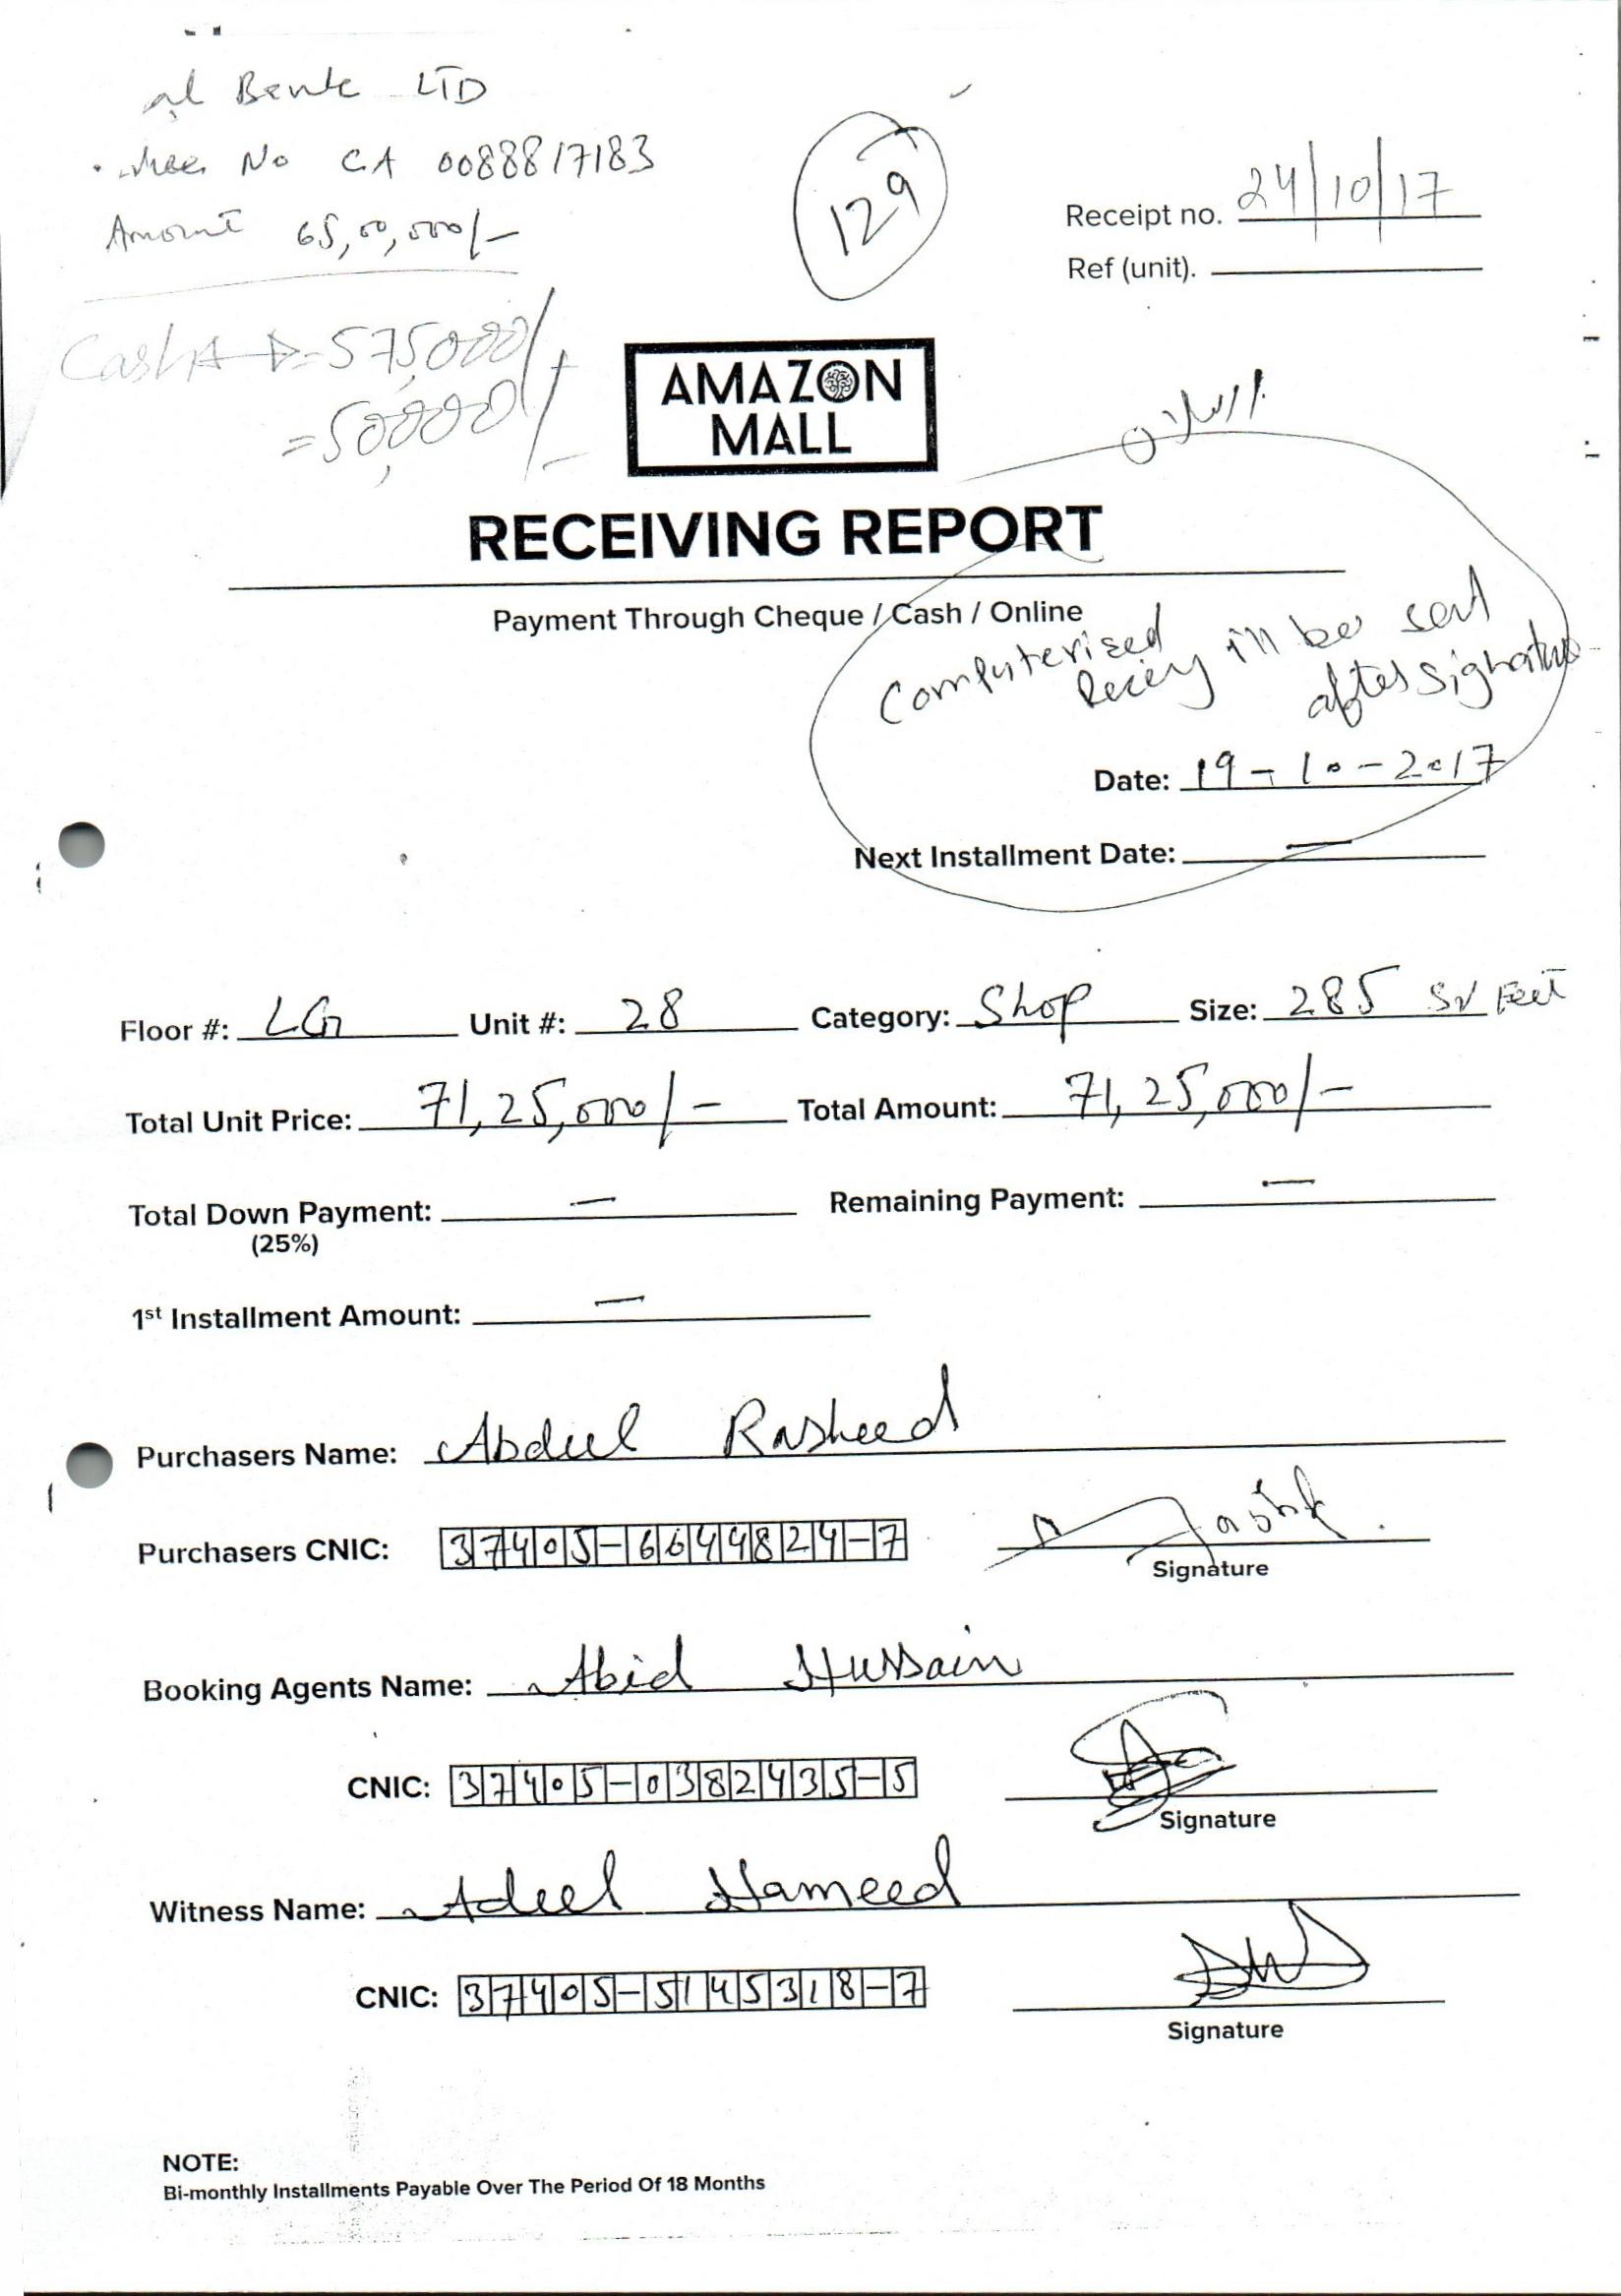 Bank LTD
No CA 0088817183
Amount 65,00,000/-
Cash 575,000/-
=50,000/-
129
Receipt no. 24/10/17
Ref (unit).
AMAZON
MALL
RECEIVING REPORT
Payment Through Cheque / Cash / Online
Computerised
be sent
after signature
Date: 19-10-2017
Next Installment Date: —
Floor #: LG Unit #: 28 Category: Shop Size: 285 Sq Feet
Total Unit Price: 71,25,000/- Total Amount: 71,25,000/-
Total Down Payment: — Remaining Payment: —
(25%)
1st Installment Amount: —
Purchasers Name: Abdul Rasheed
Purchasers CNIC: 37405-6644824-7
Signature
Booking Agents Name: Abid Hussain
CNIC: 37405-0382435-5
Signature
Witness Name: Adeel Hameed
CNIC: 37405-5145318-7
Signature
NOTE:
Bi-monthly Installments Payable Over The Period Of 18 Months